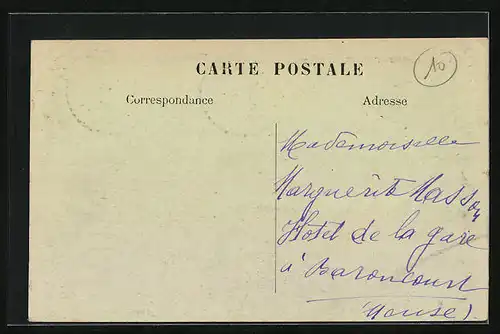 CARTE POSTALE
10
Correspondance
Adresse
Mademoiselle
Marguerite Masson
Hotel de la gare
à Baroncourt
(Meuse)